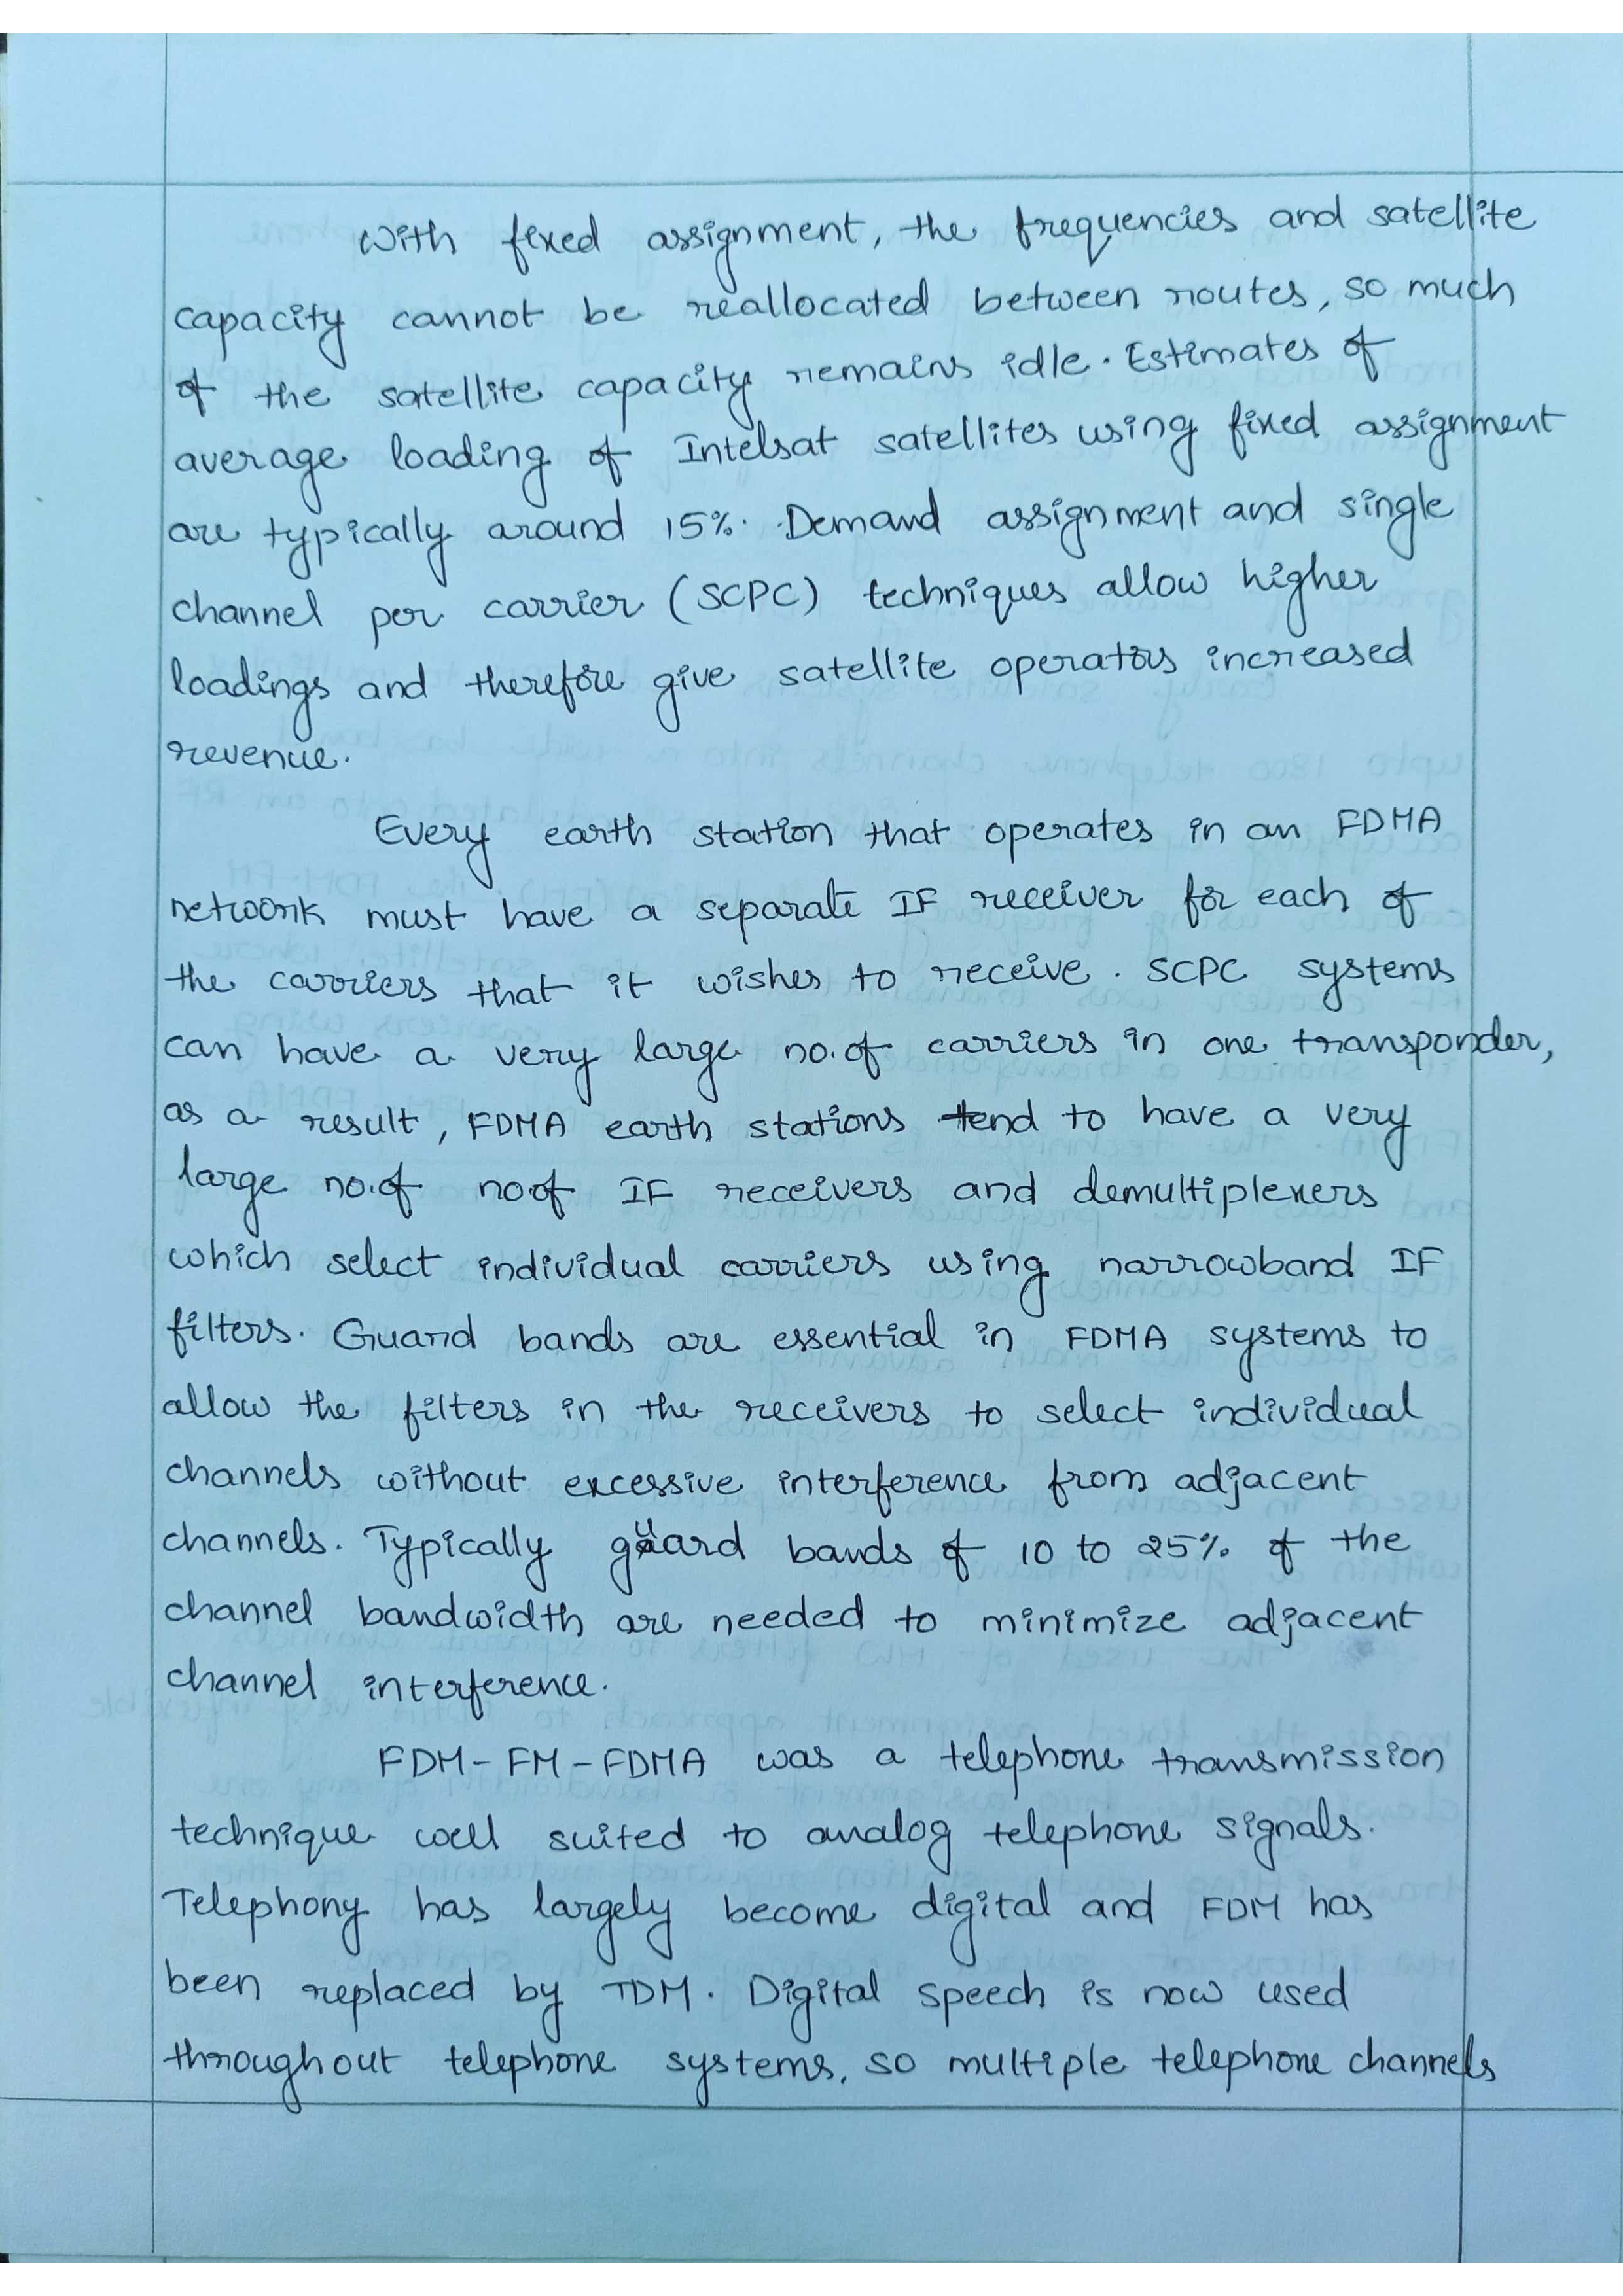 With fixed assignment, the frequencies and satellite
capacity cannot be reallocated between routes, so much
of the satellite capacity remains idle. Estimates of
average loading of Intelsat satellites using fixed assignment
are typically around 15%. Demand assignment and single
channel per carrier (SCPC) techniques allow higher
loadings and therefore give satellite operators increased
revenue.
Every earth station that operates in an FDMA
network must have a separate IF receiver for each of
the carriers that it wishes to receive. SCPC systems
can have a very large no. of carriers in one transponder,
as a result, FDMA earth stations tend to have a very
large no. of no of IF receivers and demultiplexers
which select individual carriers using narrowband IF
filters. Guard bands are essential in FDMA systems to
allow the filters in the receivers to select individual
channels without excessive interference from adjacent
channels. Typically guard bands of 10 to 25% of the
channel bandwidth are needed to minimize adjacent
channel interference.
FDM-FM-FDMA was a telephone transmission
technique well suited to analog telephone signals.
Telephony has largely become digital and FDM has
been replaced by TDM. Digital speech is now used
throughout telephone systems, so multiple telephone channels